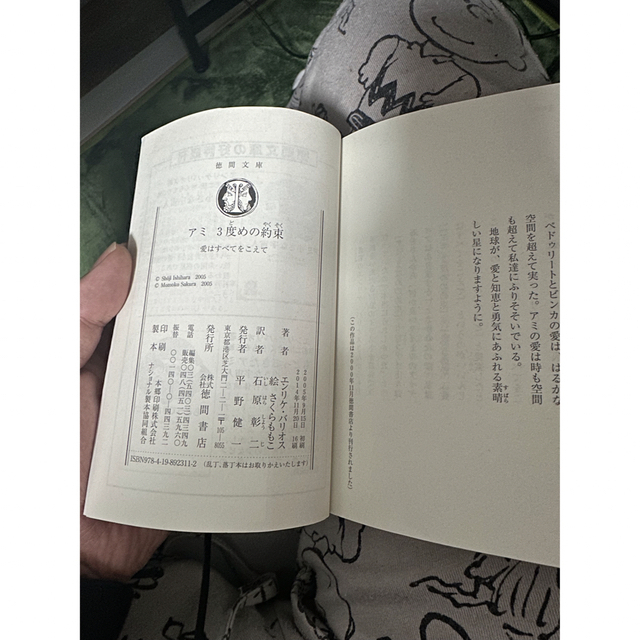 ベドゥリートとビンカの愛は、はるかな
空間を超えて実った。アミの愛は時も空間
も超えて私達にふりそそいでいる。
地球が、愛と知恵と勇気にあふれる素晴
しい星になりますように。
(この作品は2000年11月徳間書店より刊行されました)
徳間文庫
アミ 3度めの約束
愛はすべてをこえて
© Shoji Ishihara 2005
© Momoko Sakura 2005
2005年9月15日 初刷
2014年11月20日 16刷
著者 エンリケ・バリオス
絵 さくらももこ
訳者 石原彰二
発行者 平野健一
東京都港区芝大門2-2-1 〒105-8055
発行所 株式会社徳間書店
電話 編集〇三(五四〇三)四三四九
印刷 本郷印刷株式会社
製本 ナショナル製本協同組合
ISBN978-4-19-892311-2 (乱丁、落丁本はお取りかえいたします)